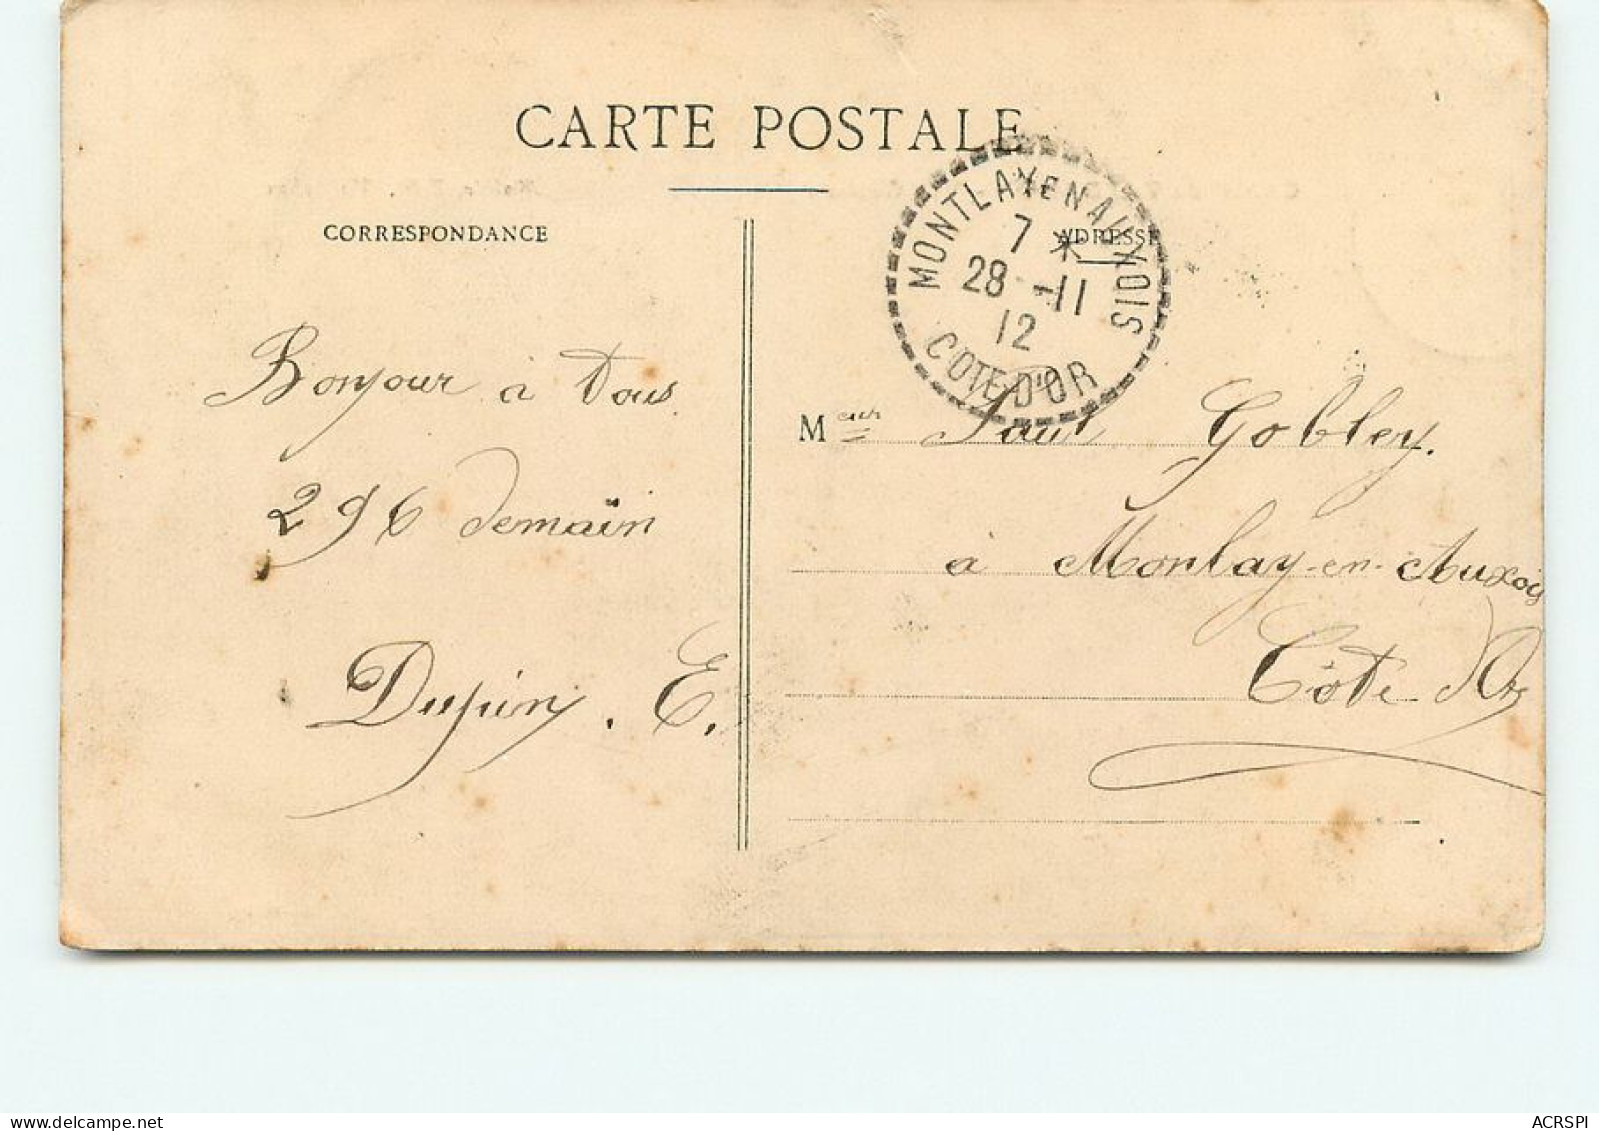 CARTE POSTALE
CORRESPONDANCE
ADRESSE
MONTLAY EN AUXOIS
7 *
28 - 11
12
COTE D'OR
Bonjour à tous
296 demain
Dupin. E.
Meur Paul Gobley.
à Montay-en-Auxois
Côte d'Or
ACRSPI